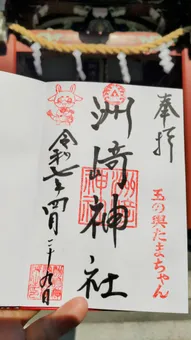 奉拝
玉の輿たまちゃん
洲崎神社
令和七年四月二十九日